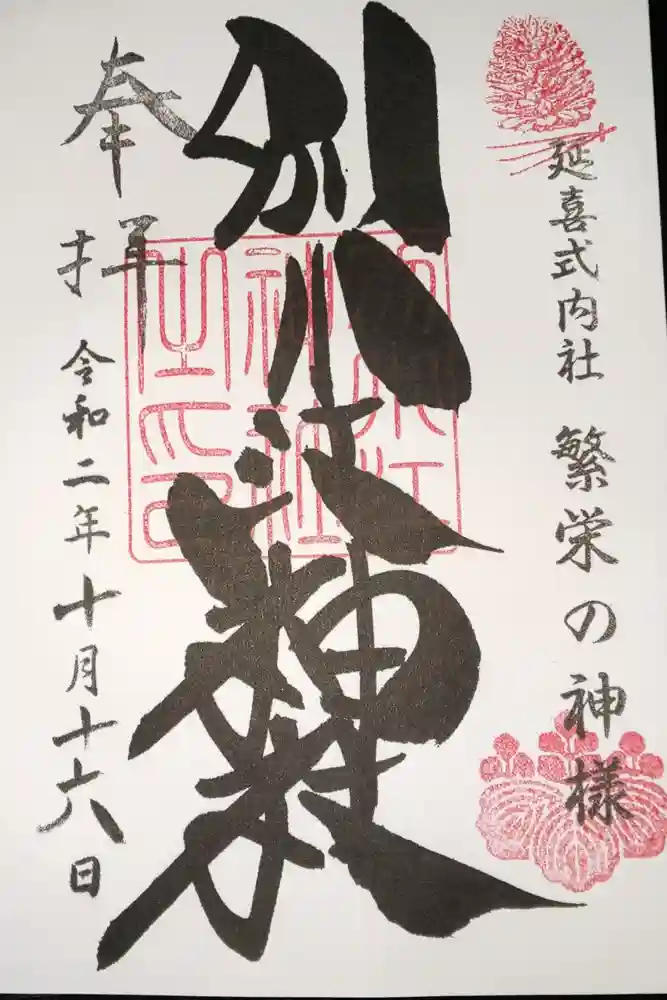 延喜式内社 繁栄の神様
別小江神社
別小江神社之印
奉拝
令和二年十月十六日